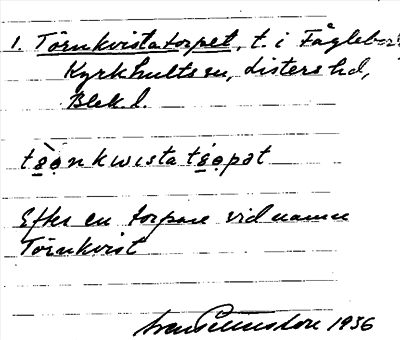 1. Törnkvistatorpet, t. i Fåglebo
Kyrkhults sn, Listers hd,
Blek l.
Efter en torpare vid namn
Törnkvist
1936